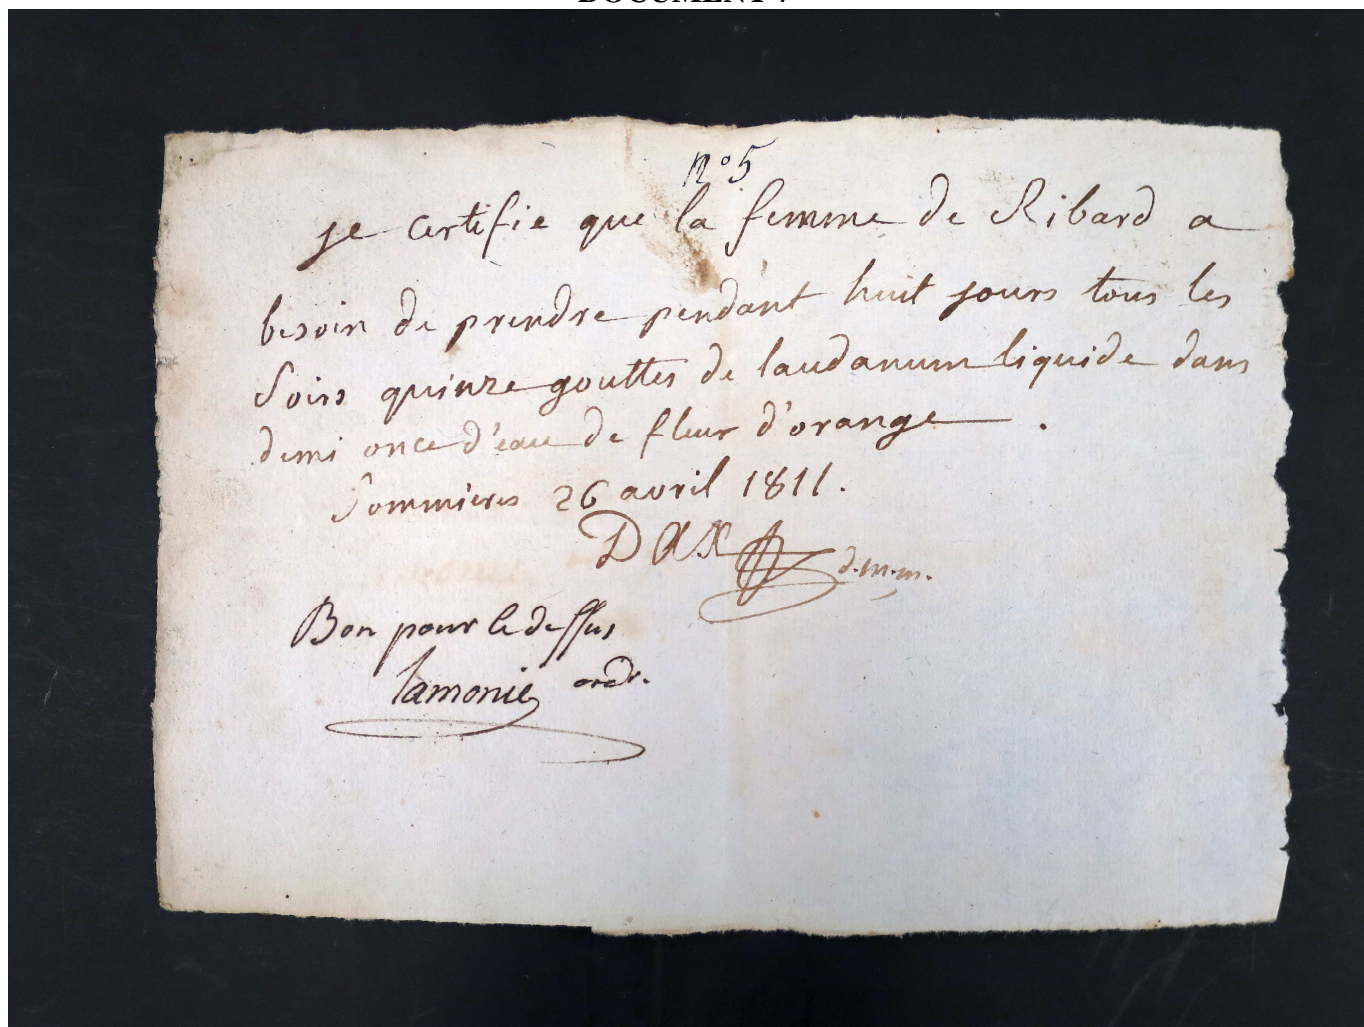 DOCUMENT 7
n° 5
je certifie que la femme de Ribard a
besoin de prendre pendant huit jours tous les
soirs quinze gouttes de laudanum liquide dans
demi once d'eau de fleur d'orange.
Sommieres 26 avril 1811.
DAX d.m.m.
Bon pour le dessus
Lamonie ordr.